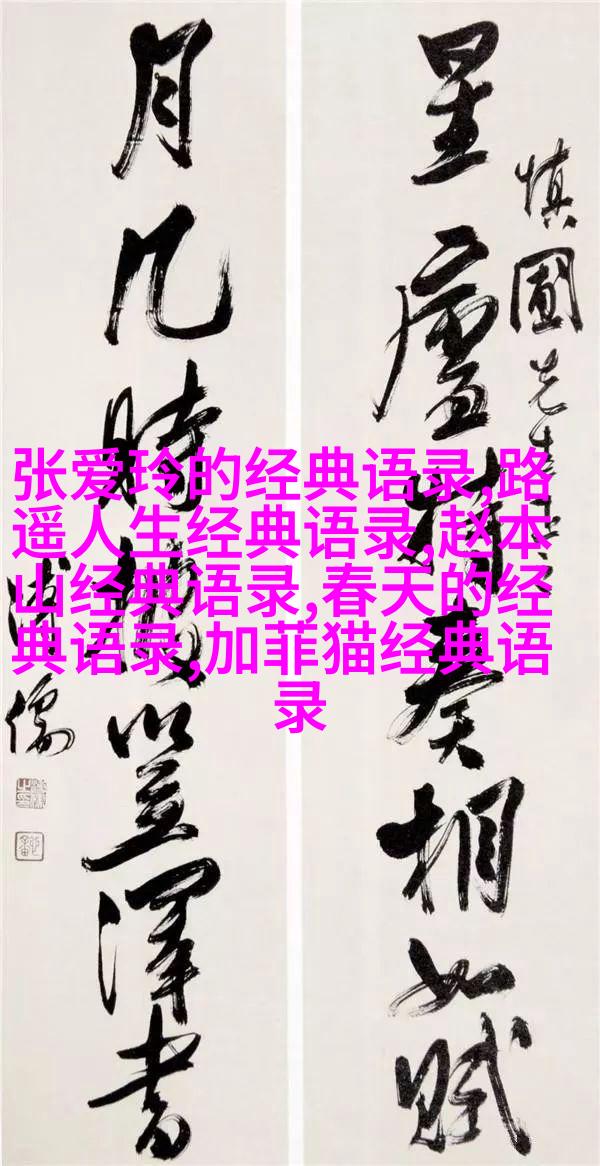 慎圃先生
星廬奏相如賦
月几時笠澤書
溥儒
张爱玲的经典语录,路
遥人生经典语录,赵本
山经典语录,春天的经
典语录,加菲猫经典语
录